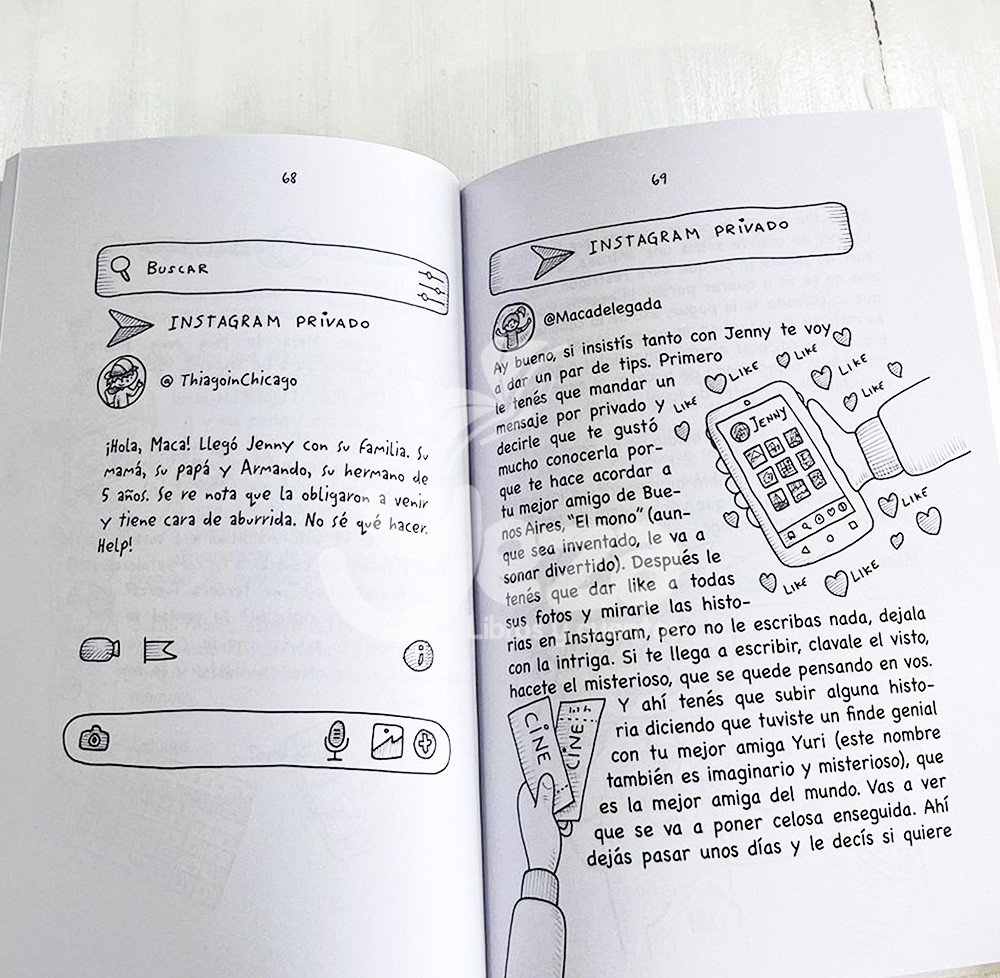 68
BUSCAR
INSTAGRAM PRIVADO
@ ThiagoinChicago
¡Hola, Maca! Llegó Jenny con su familia. Su
mamá, su papá y Armando, su hermano de
5 años. Se re nota que la obligaron a venir
y tiene cara de aburrida. No sé qué hacer.
Help!
69
INSTAGRAM PRIVADO
@Macadelegada
Ay bueno, si insistís tanto con Jenny te voy
a dar un par de tips. Primero
le tenés que mandar un
mensaje por privado y
decirle que te gustó
mucho conocerla por-
que te hace acordar a
tu mejor amigo de Bue-
nos Aires, "El mono" (aun-
que sea inventado, le va a
sonar divertido). Después le
tenés que dar like a todas
sus fotos y mirarle las histo-
rias en Instagram, pero no le escribas nada, dejala
con la intriga. Si te llega a escribir, clavale el visto,
hacete el misterioso, que se quede pensando en vos.
Y ahí tenés que subir alguna histo-
ria diciendo que tuviste un finde genial
con tu mejor amiga Yuri (este nombre
también es imaginario y misterioso), que
es la mejor amiga del mundo. Vas a ver
que se va a poner celosa enseguida. Ahí
dejás pasar unos días y le decís si quiere
LIKE
LIKE
LIKE
LIKE
LIKE
JENNY
LIKE
LIKE
LIKE
CINE
CINE
Libros